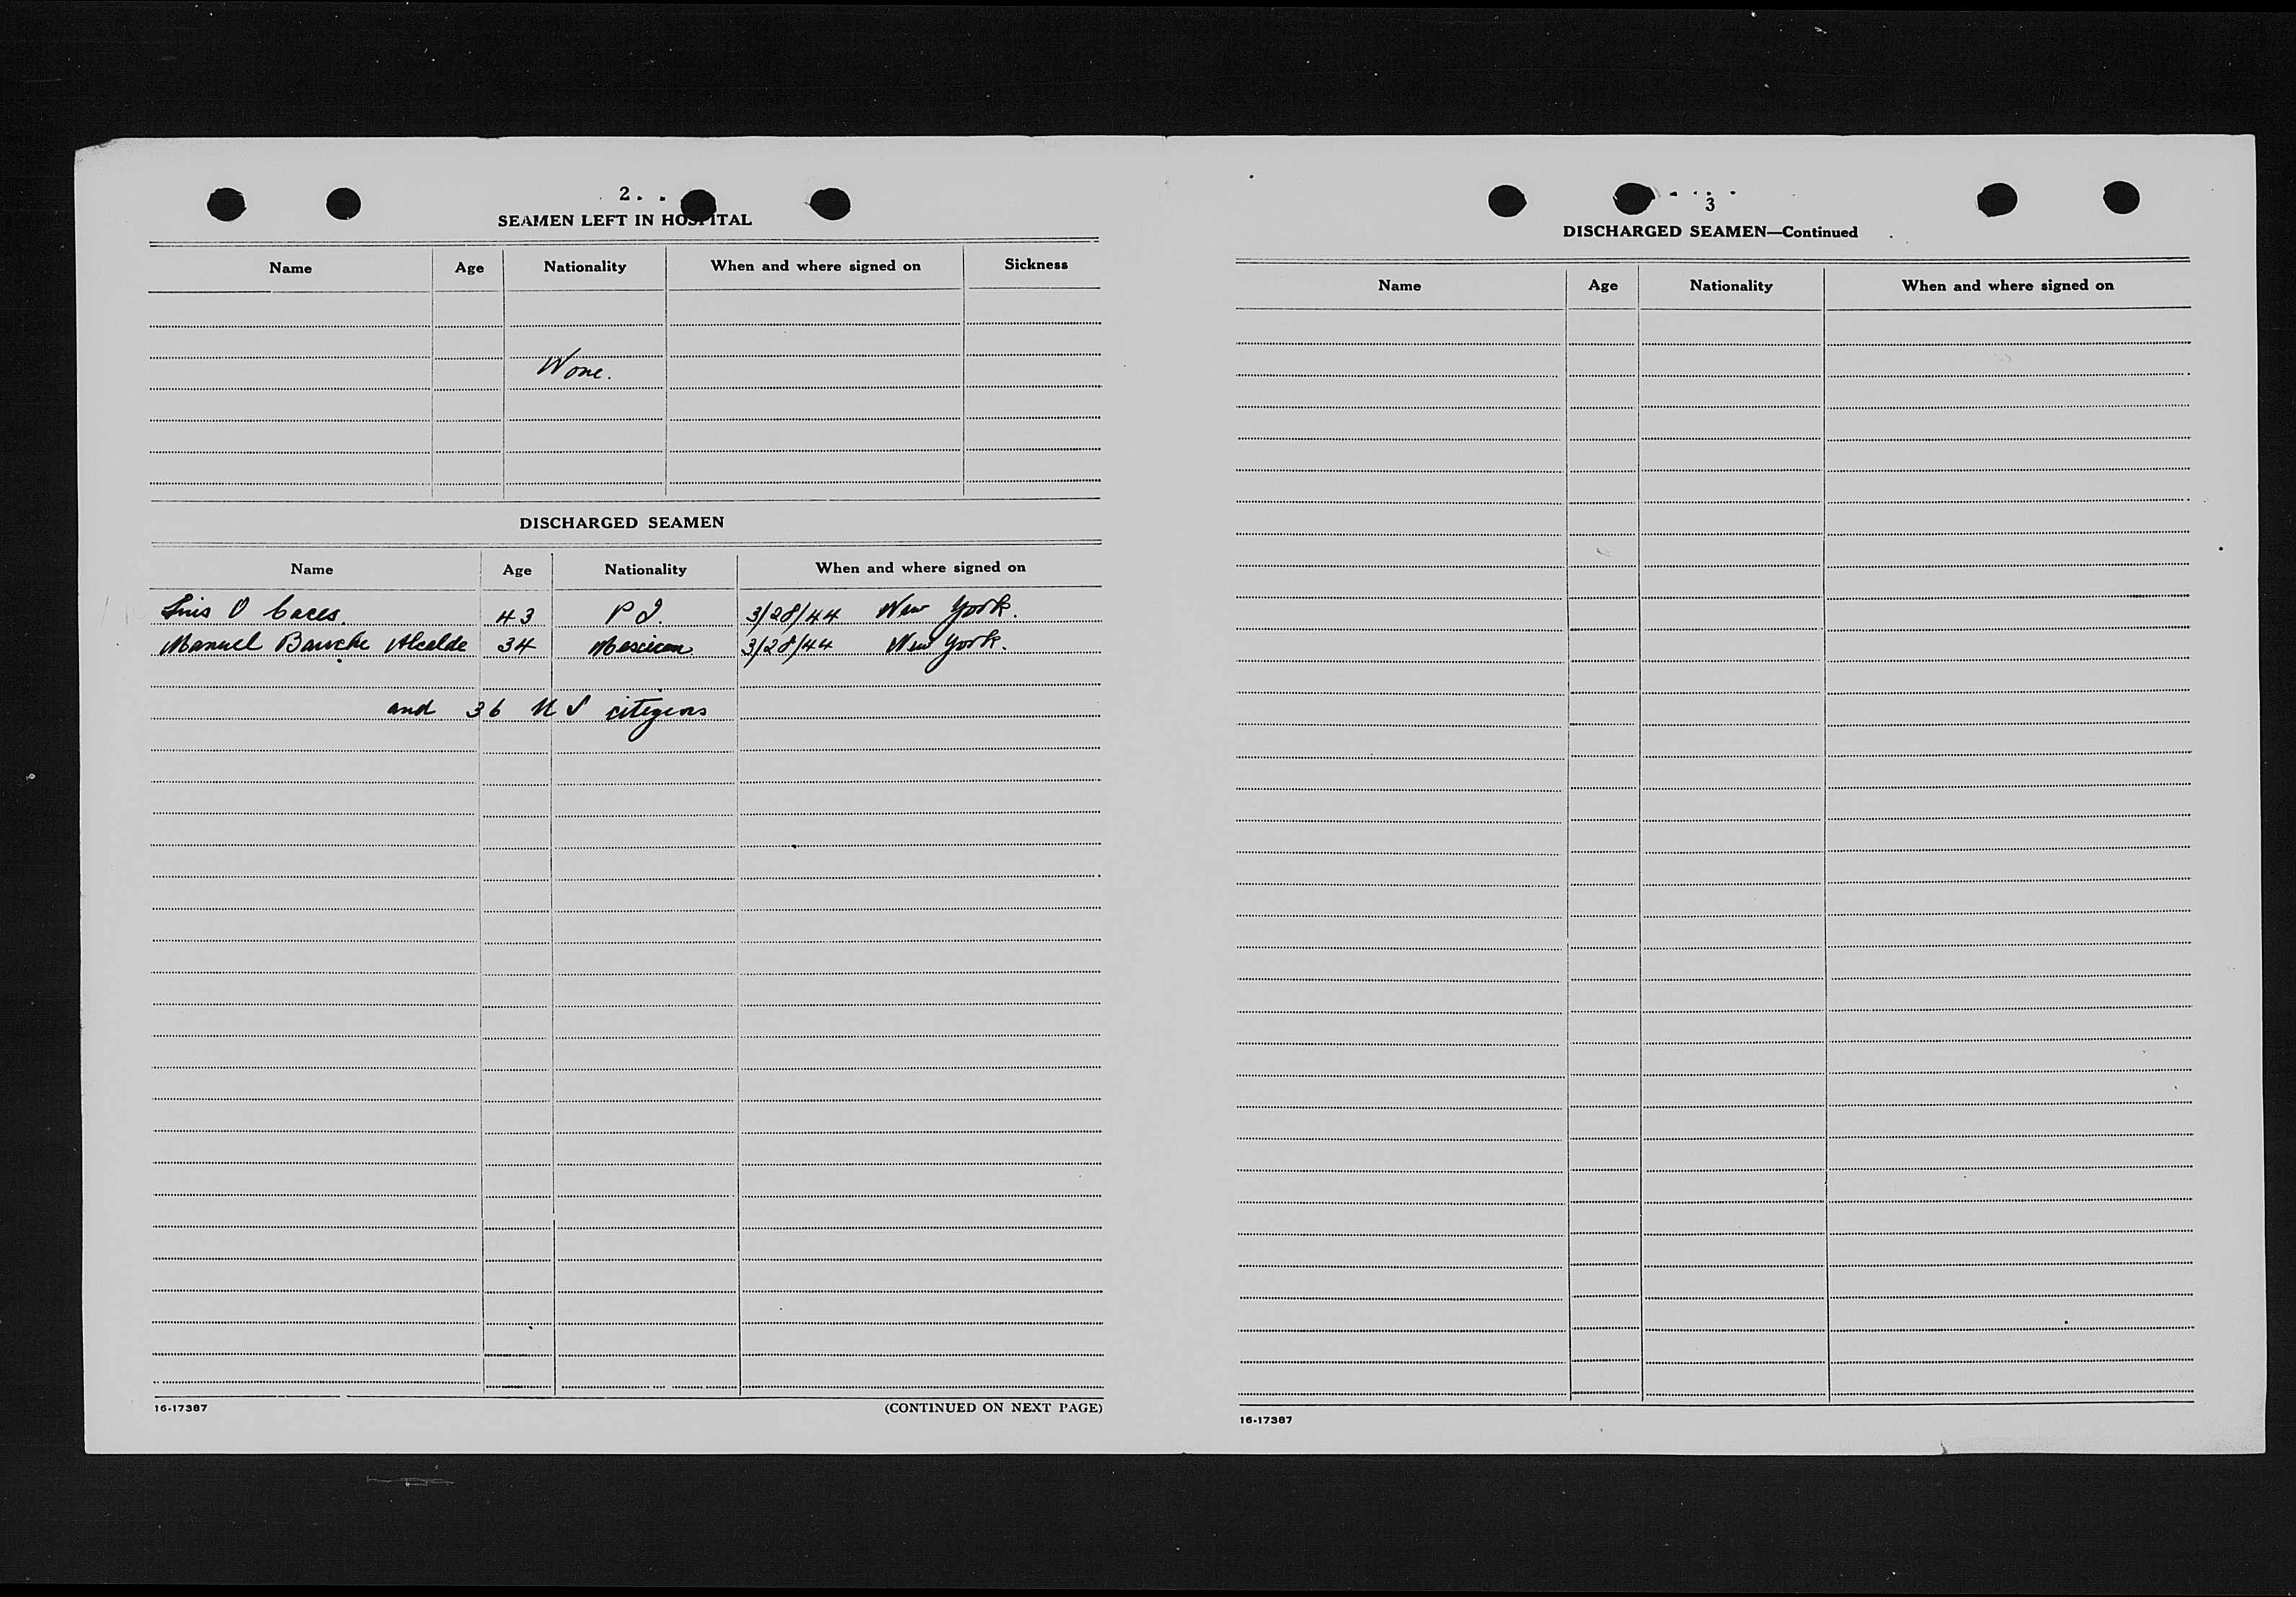 2
SEAMEN LEFT IN HOSPITAL
Name Age Nationality When and where signed on Sickness
None.
DISCHARGED SEAMEN
Name Age Nationality When and where signed on
O Caces. 43 P I. 3/28/44 New York.
Manuel Alcalde 34 Mexican 3/28/44 New York.
and 36 U S citizens
16-17387 (CONTINUED ON NEXT PAGE)
3
DISCHARGED SEAMEN—Continued
Name Age Nationality When and where signed on
16-17387